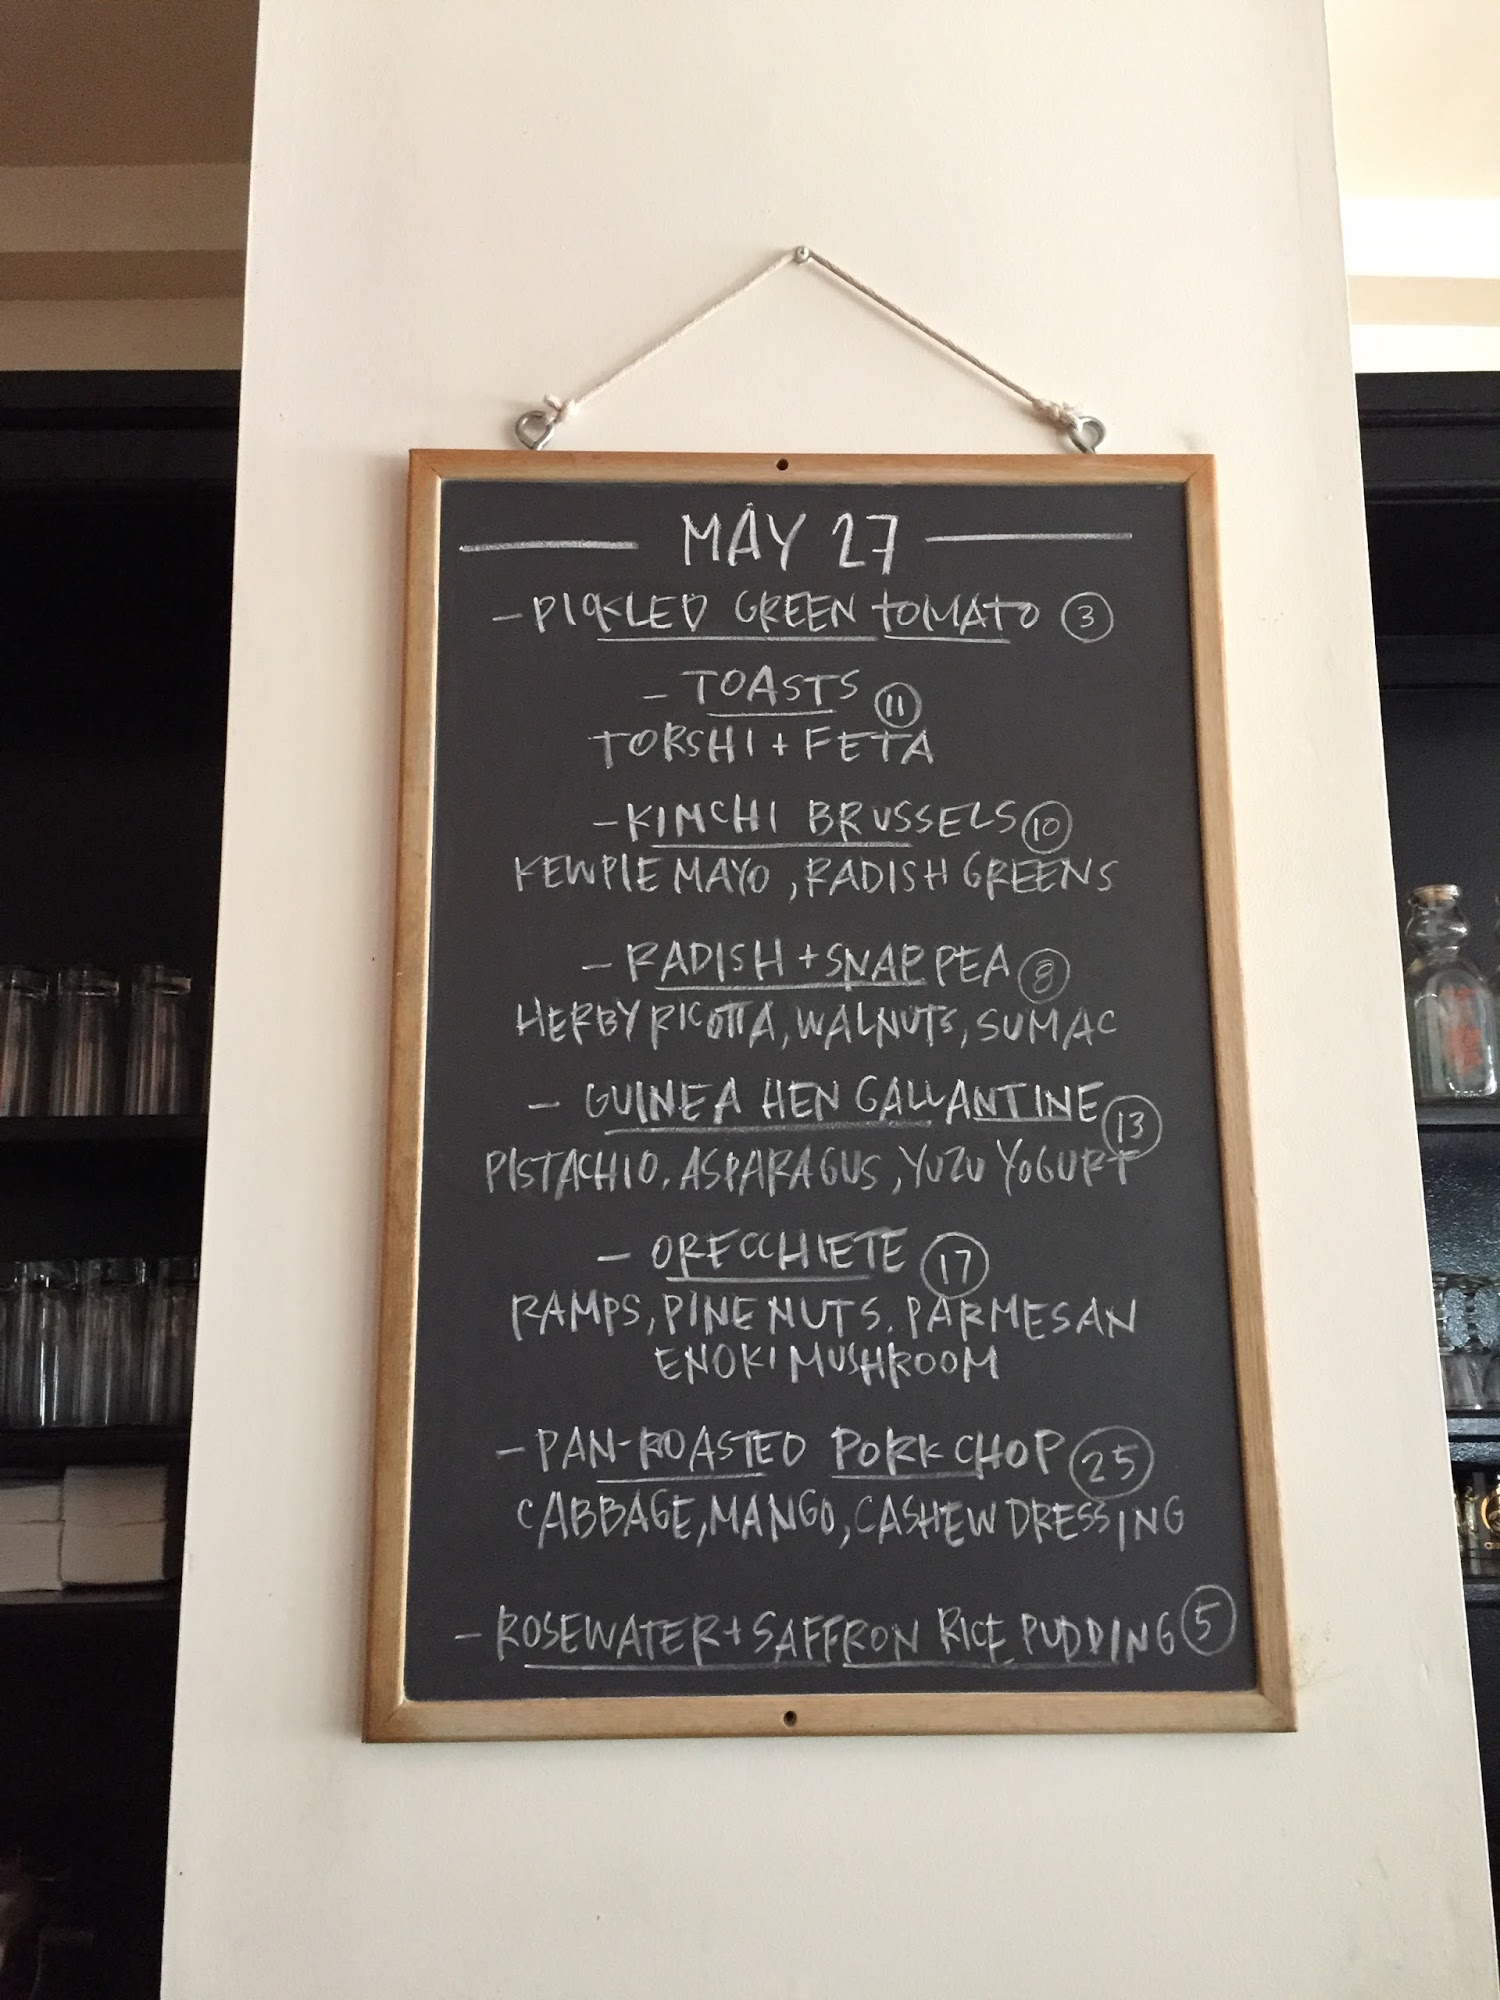 MAY 27
- PICKLED GREEN TOMATO 3
- TOASTS 11
TORSHI + FETA
- KIMCHI BRUSSELS 10
KEWPIE MAYO, RADISH GREENS
- RADISH + SNAP PEA 8
HERBY RICOTTA, WALNUTS, SUMAC
- GUINEA HEN GALLANTINE 13
PISTACHIO, ASPARAGUS, YUZU YOGURT
- ORECCHIETE 17
RAMPS, PINE NUTS, PARMESAN
ENOKI MUSHROOM
- PAN-ROASTED PORK CHOP 25
CABBAGE, MANGO, CASHEW DRESSING
- ROSEWATER + SAFFRON RICE PUDDING 5